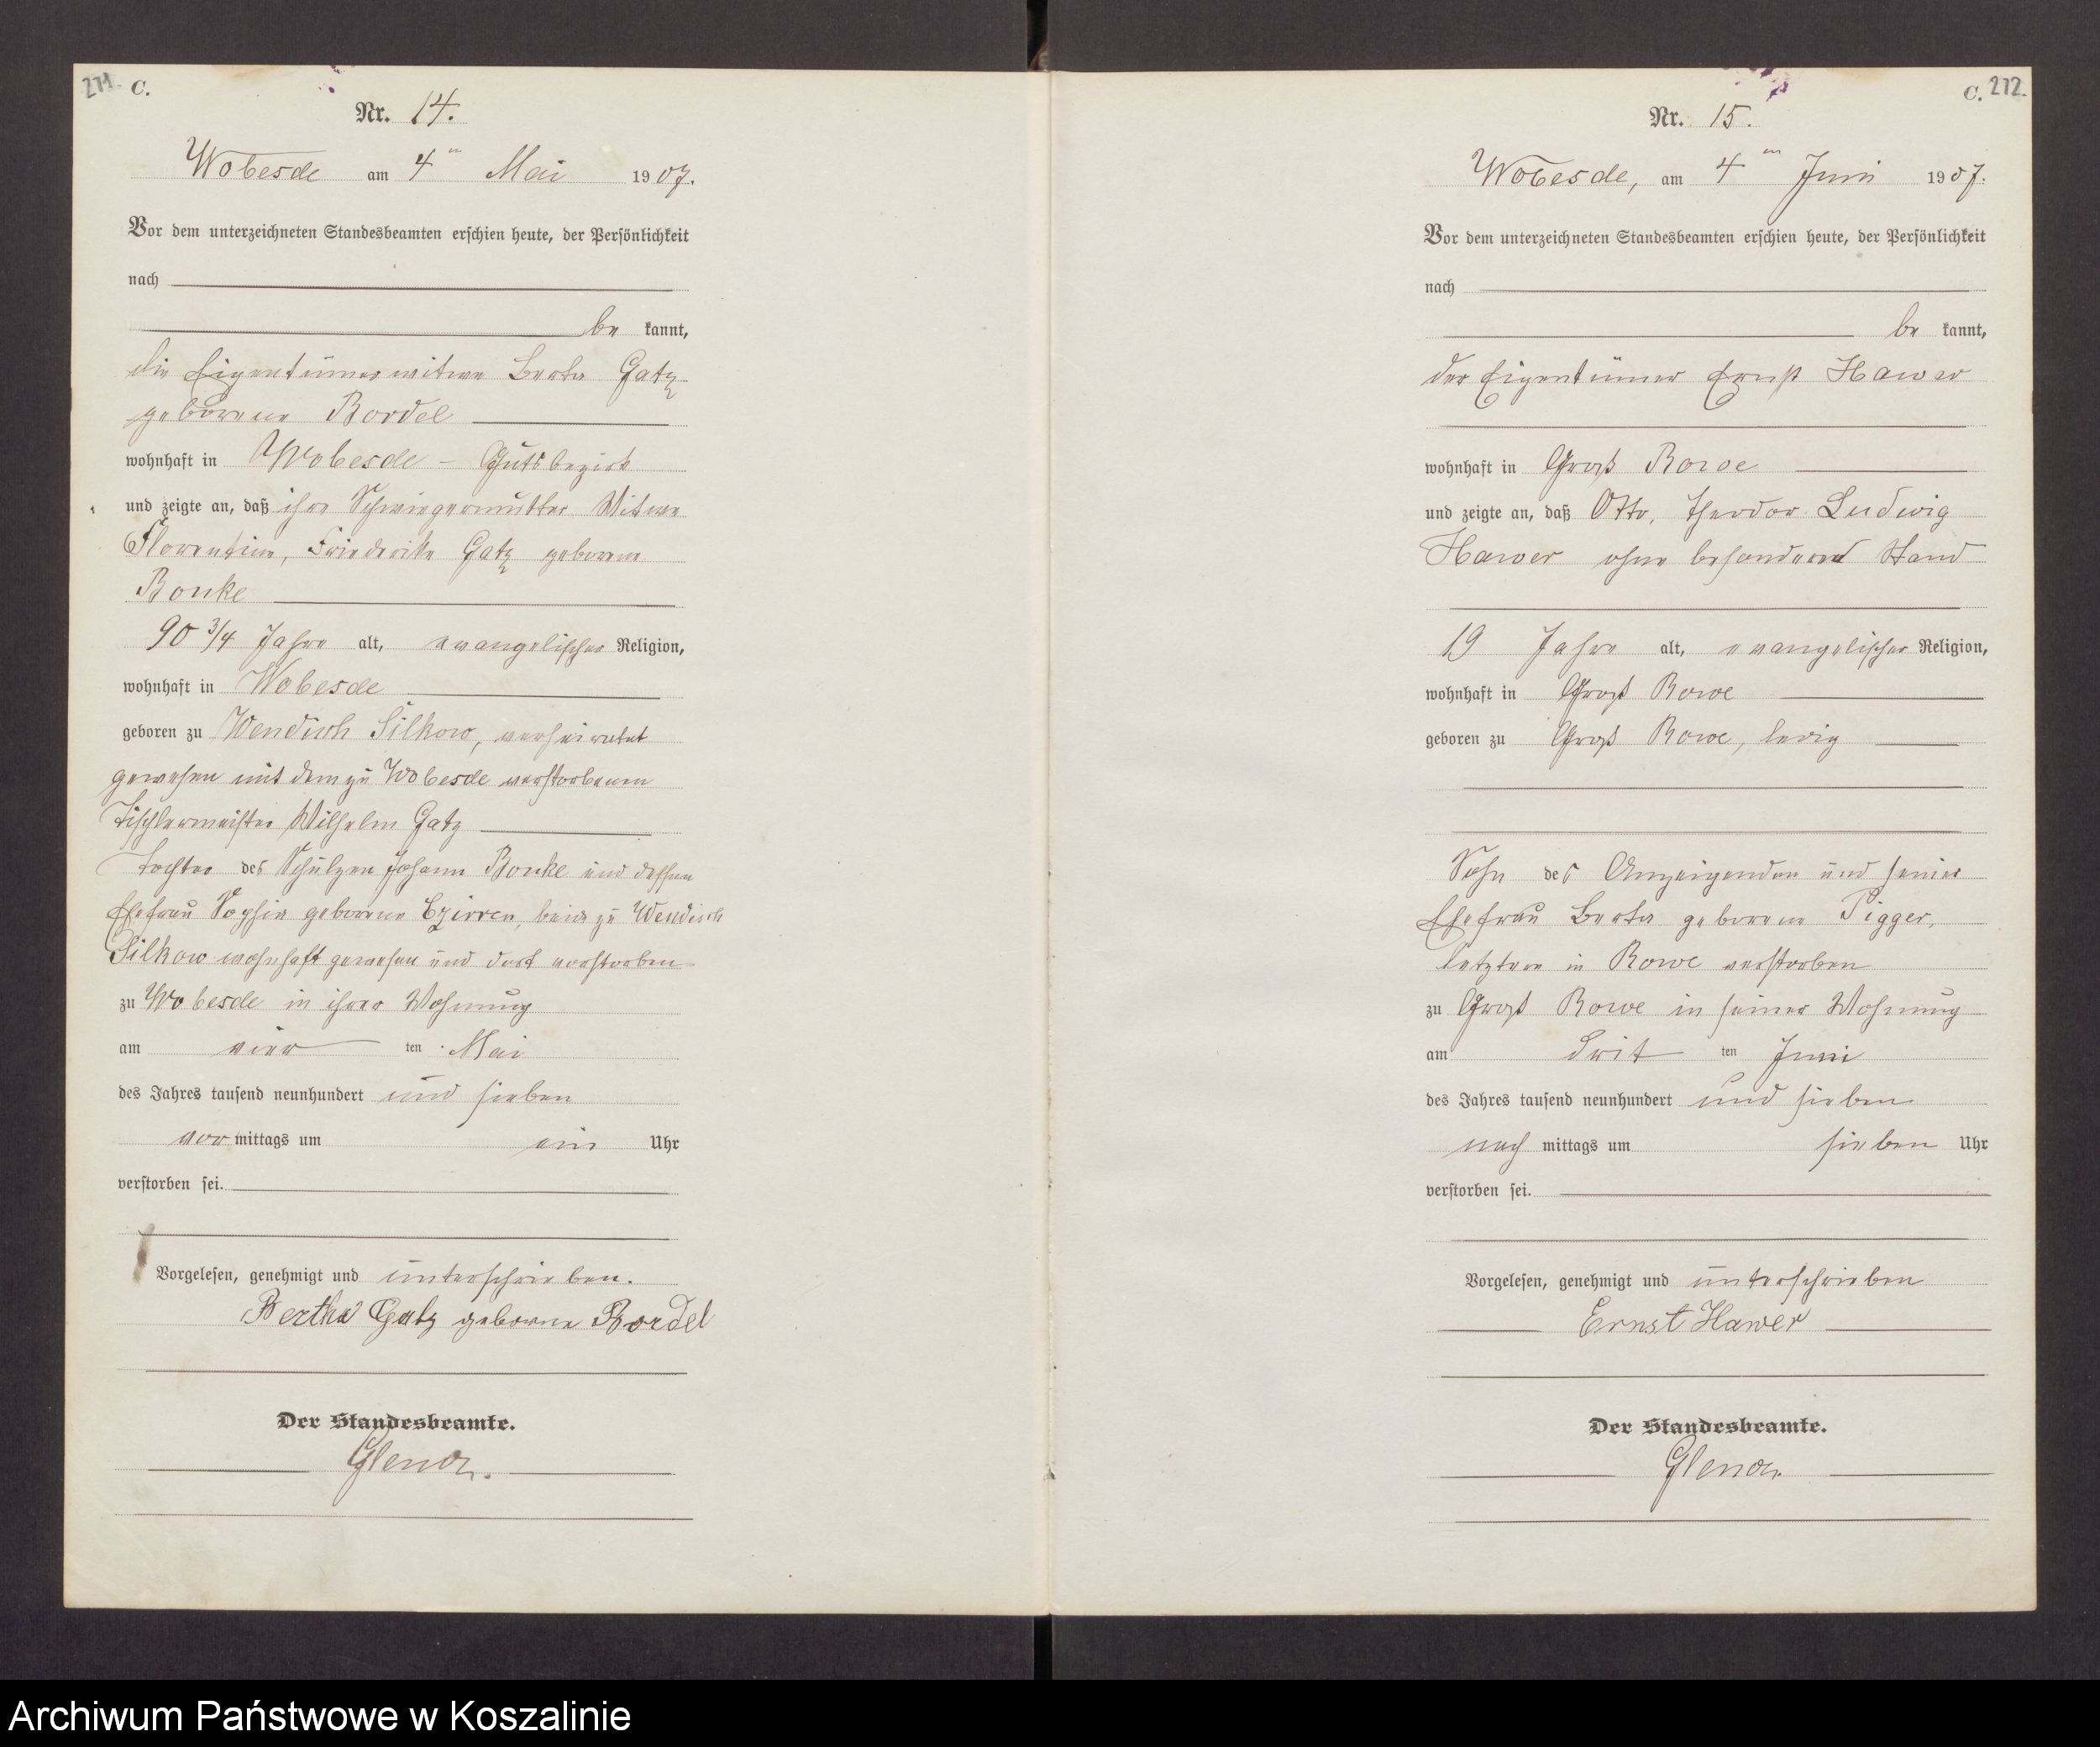 271. C.
Nr. 14.
Wobesde am 4ten Mai 1907.
Vor dem unterzeichneten Standesbeamten erschien heute, der Persönlichkeit
nach
be kannt,
die Eigentümerwitwe Berta Gatz
geborene Bordel
wohnhaft in Wobesde - Gutsbezirk
und zeigte an, daß ihre Schwiegermutter Witwe
Florentine, Friederike Gatz geborene
Bonke
90 3/4 Jahre alt, evangelischer Religion,
wohnhaft in Wobesde
geboren zu Wendisch Silkow, verheiratet
gewesen mit dem zu Wobesde verstorbenen
Tischlermeister Wilhelm Gatz
Tochter des Schulzen Johann Bonke und dessen
Ehefrau Sophie geborene Czirren, beide zu Wendisch
Silkow wohnhaft gewesen und dort verstorben
zu Wobesde in ihrer Wohnung
am vier ten Mai
des Jahres tausend neunhundert und sieben
vor mittags um ein Uhr
verstorben sei.
Vorgelesen, genehmigt und unterschrieben.
Bertha Gatz geborne Bordel
Der Standesbeamte.
C. 272.
Nr. 15.
Wobesde, am 4ten Juni 1907.
Vor dem unterzeichneten Standesbeamten erschien heute, der Persönlichkeit
nach
be kannt,
der Eigentümer Ernst Hawer
wohnhaft in Groß Rowe
und zeigte an, daß Otto, Theodor Ludwig
Hawer ohne besonderen Stand
19 Jahre alt, evangelischer Religion,
wohnhaft in Groß Rowe
geboren zu Groß Rowe, ledig
Sohn des Anzeigenden und seiner
Ehefrau Berta geborene Pigger,
letztere in Rowe verstorben
zu Groß Rowe in seiner Wohnung
am drit ten Juni
des Jahres tausend neunhundert und sieben
nach mittags um sieben Uhr
verstorben sei.
Vorgelesen, genehmigt und unterschrieben
Ernst Hawer
Der Standesbeamte.
Archiwum Państwowe w Koszalinie